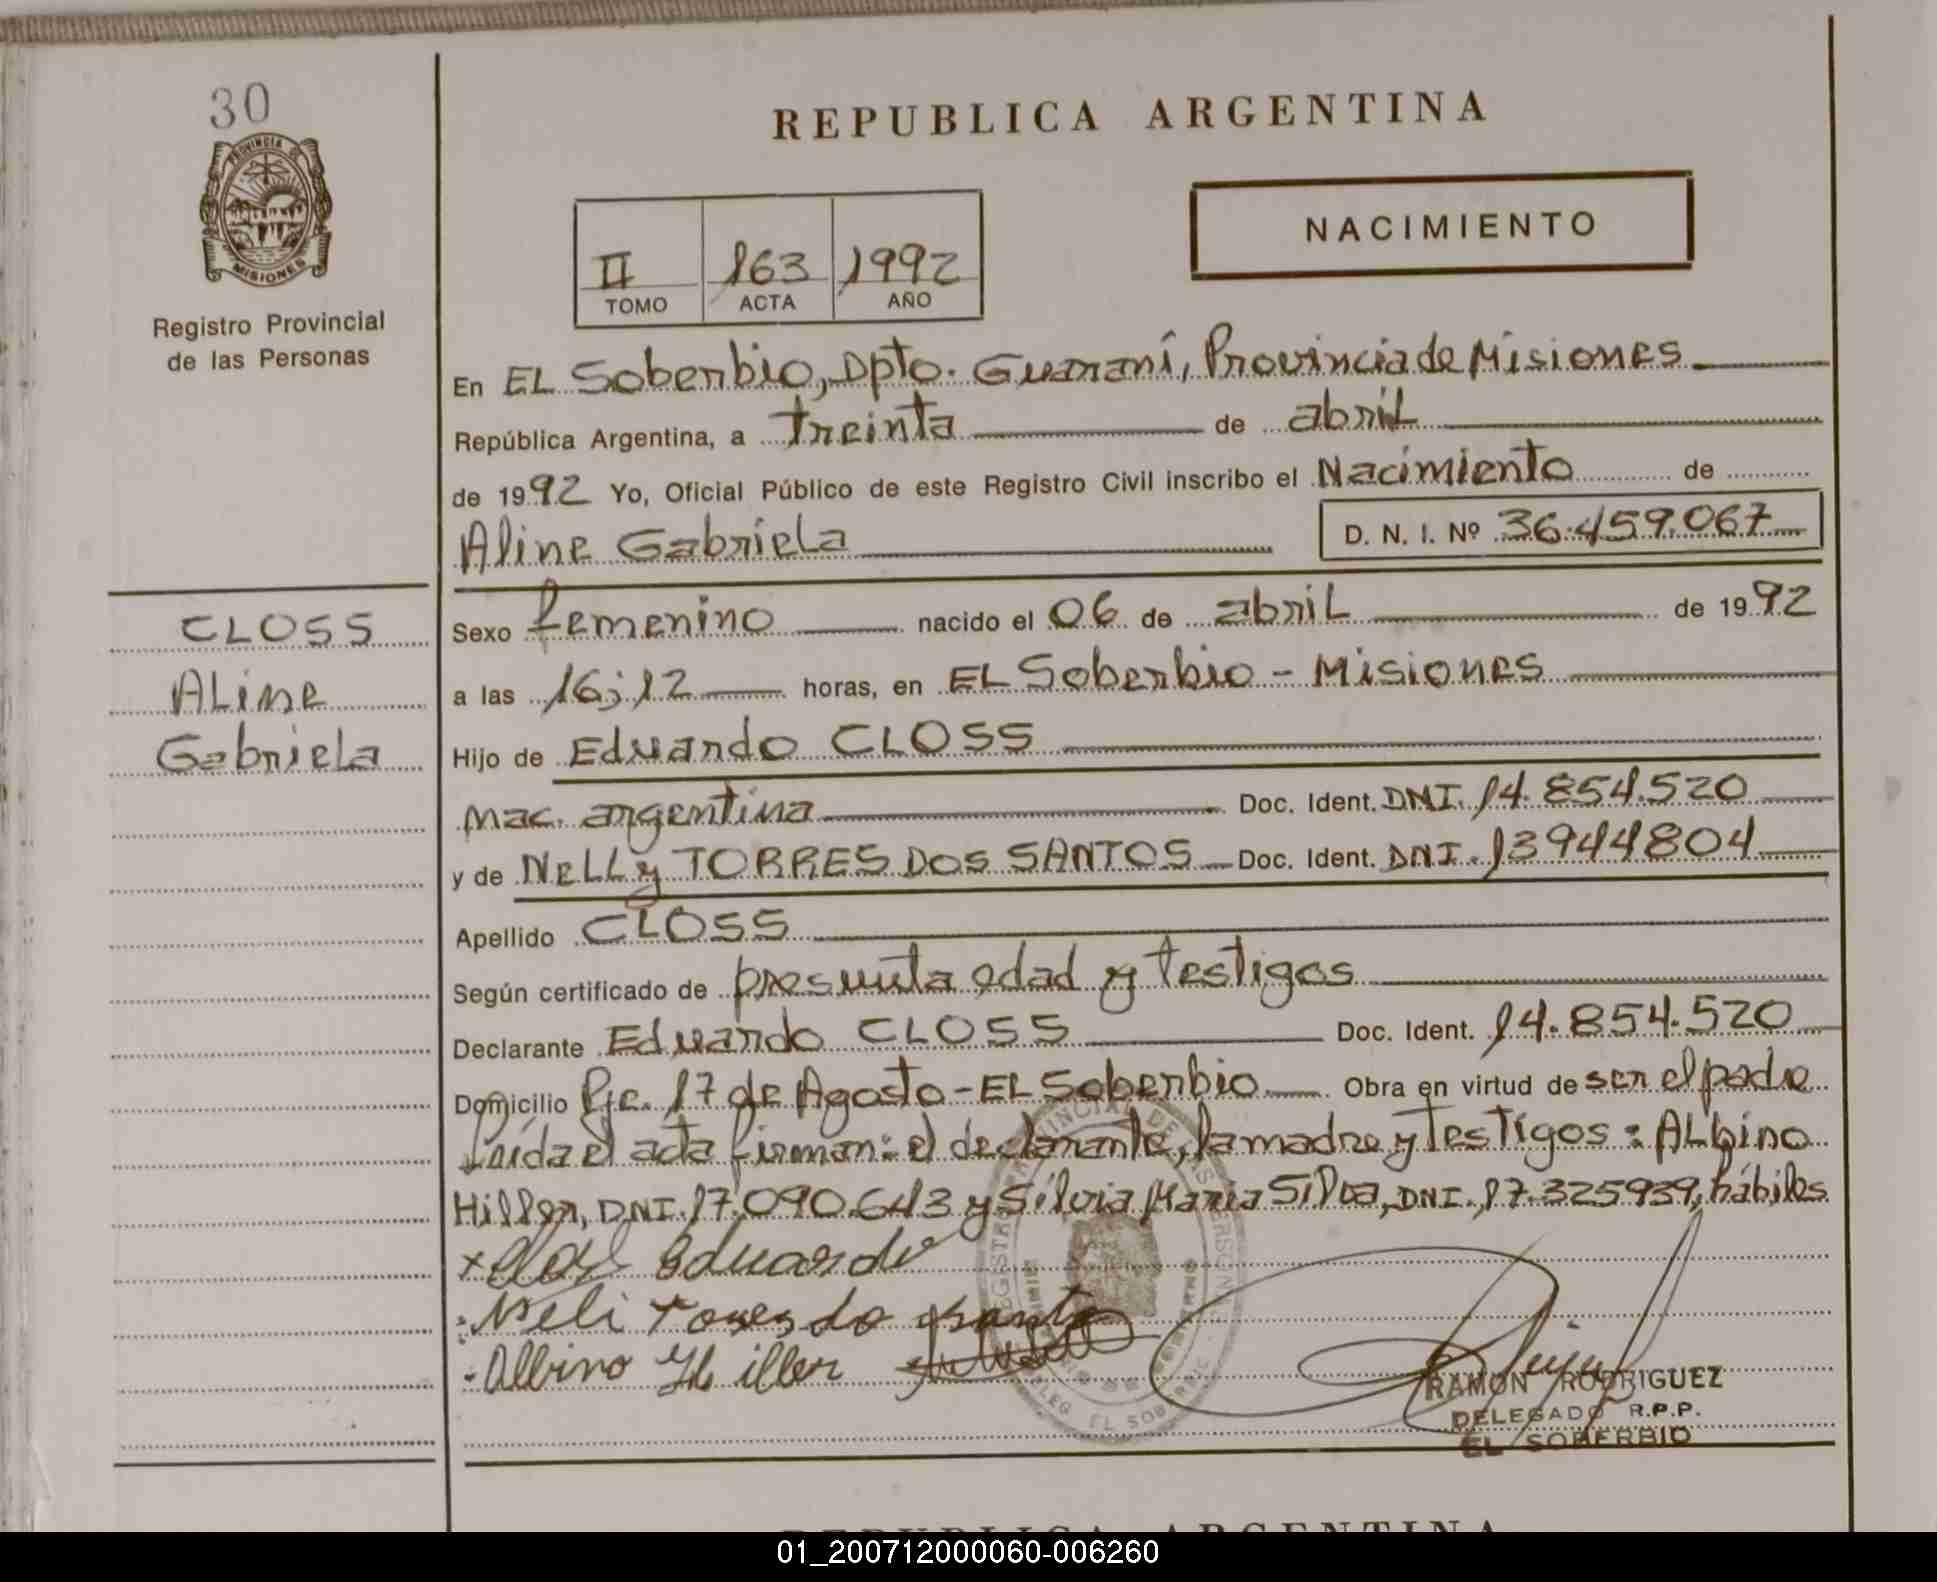 30
PROVINCIA DE
MISIONES
Registro Provincial
de las Personas
REPUBLICA ARGENTINA
II 163 1992
TOMO ACTA AÑO
NACIMIENTO
En EL Soberbio, Dpto. Guaraní, Provincia de Misiones
República Argentina, a treinta de abril
de 1992 Yo, Oficial Público de este Registro Civil inscribo el Nacimiento de
Aline Gabriela D. N. I. Nº 36.459.067
CLOSS
Aline
Gabriela
Sexo femenino nacido el 06 de abril de 1992
a las 16;12 horas, en EL Soberbio - Misiones
Hijo de Eduardo CLOSS
nac. argentina Doc. Ident. DNI. 14.854.520
y de NELLy TORRES DOS SANTOS Doc. Ident. DNI. 13944804
Apellido CLOSS
Según certificado de presunta edad y testigos
Declarante Eduardo CLOSS Doc. Ident. 14.854.520
Domicilio Pje. 17 de Agosto - EL Soberbio Obra en virtud de ser el padre
Leída el acta firman: el declarante, la madre y testigos: Albino
Hiller, DNI. 17.090.643 y Silvia Maria Silva, DNI. 17.325939, hábiles
x Closs Eduardo
Neli Torres do Santo
Albino Hiller
RAMON RODRIGUEZ
DELEGADO R.P.P.
EL SOBERBIO
REPUBLICA ARGENTINA
01_200712000060-006260